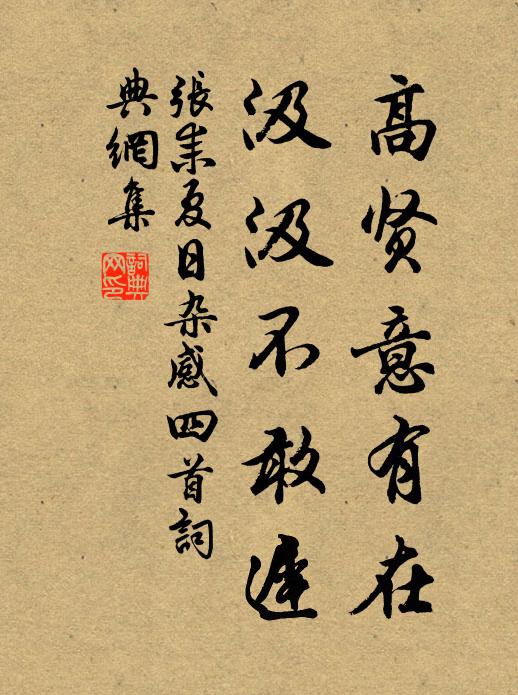 高贤意有在
汲汲不敢迟
張耒夏日杂感四首詞
典網集
詞典
网印